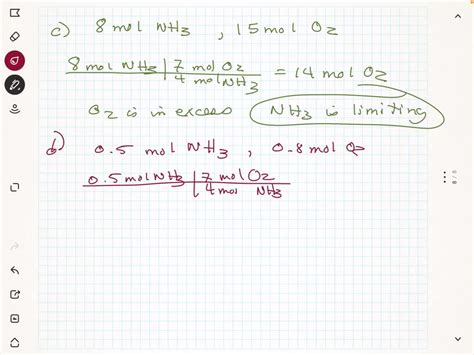 c) 8 mol NH3 , 15 mol O2
8 mol NH3 | 7 mol O2
4 mol NH3 = 14 mol O2
O2 is in excess NH3 is limiting
b) 0.5 mol NH3 , 0.8 mol O2
0.5 mol NH3 | 7 mol O2
4 mol NH3